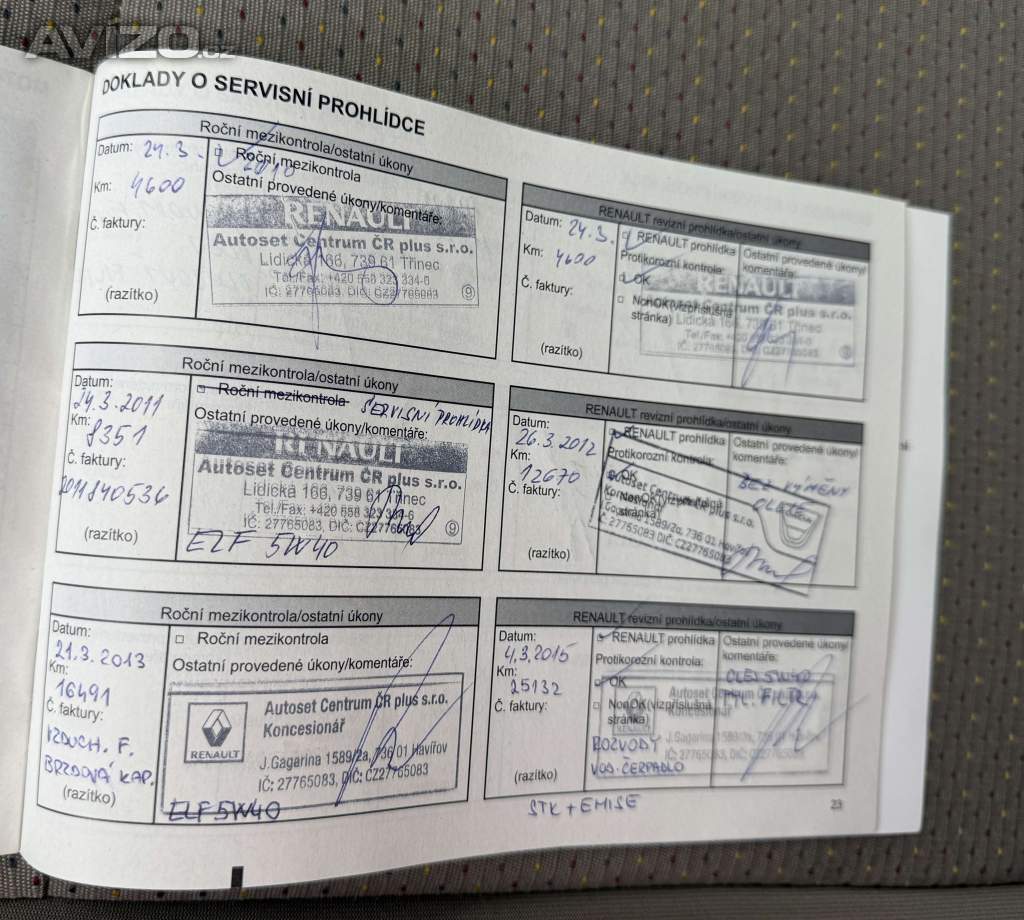 AVÍZO.cz
DOKLADY O SERVISNÍ PROHLÍDCE
Roční mezikontrola/ostatní úkony
Datum: 24.3. 2010
Roční mezikontrola
Km: 4600
Ostatní provedené úkony/komentáře:
Č. faktury:
(razítko)
RENAULT
Autoset Centrum ČR plus s.r.o.
Lidická 166, 739 61 Třinec
Tel./Fax: +420 558 323 334-6
IČ: 27765083, DIČ: CZ27765083
9
RENAULT revizní prohlídka/ostatní úkony
Datum: 24.3.
RENAULT prohlídka
Ostatní provedené úkony/
komentáře:
Km: 4600
Protikorozní kontrola:
OK
Č. faktury:
NonOK(vizpříslušná
stránka)
(razítko)
RENAULT
Centrum ČR plus s.r.o.
Lidická 166, 739 61 Třinec
IČ: 27765083, DIČ: CZ27765083
Roční mezikontrola/ostatní úkony
Datum:
24.3.2011
Roční mezikontrola SERVISNÍ PROHLÍDKA
Km:
8351
Ostatní provedené úkony/komentáře:
Č. faktury:
2011840536
(razítko)
RENAULT
Autoset Centrum ČR plus s.r.o.
Lidická 166, 739 61 Třinec
Tel./Fax: +420 558 323 334-6
IČ: 27765083, DIČ: CZ27765083
9
ELF 5W40
RENAULT revizní prohlídka/ostatní úkony
Datum:
26.3.2012
RENAULT prohlídka
Ostatní provedené úkony/
komentáře:
Km:
12670
Protikorozní kontrola:
OK
Č. faktury:
NonOK(vizpříslušná
stránka)
BEZ VÝMĚNY
OLEJE
(razítko)
Autoset Centrum ČR plus s.r.o.
Gagarina 1589/2a, 736 01 Havířov
IČ: 27765083 DIČ: CZ27765083
Roční mezikontrola/ostatní úkony
Datum:
21.3.2013
Roční mezikontrola
Km:
16491
Ostatní provedené úkony/komentáře:
Č. faktury:
VZDUCH. F.
BRZDOVÁ KAP.
(razítko)
RENAULT
Autoset Centrum ČR plus s.r.o.
Koncesionář
J.Gagarina 1589/2a, 736 01 Havířov
IČ: 27765083, DIČ: CZ27765083
ELF 5W40
RENAULT revizní prohlídka/ostatní úkony
Datum:
4.3.2015
RENAULT prohlídka
Ostatní provedené úkony/
komentáře:
Km:
25132
Protikorozní kontrola:
OK
OLEJ 5W40
Č. faktury:
NonOK(vizpříslušná
stránka)
ROZVODY
VOD. ČERPADLO
(razítko)
STK + EMISE
23